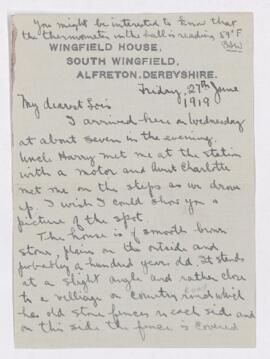 You might be interested to know that
the thermometer in the hall is reading 59° F
WINGFIELD HOUSE,
SOUTH WINGFIELD,
ALFRETON, DERBYSHIRE.
Friday, 27th June
1919
My dearest Lois
I arrived here on Wednesday
at about seven in the evening.
Uncle Harry met me at the station
with a motor and Aunt Charlotte
met me on the steps as we drove
up. I wish I could show you a
picture of the spot.
The house is of smooth brown
stone, plain on the outside and
probably a hundred years old. It stands
at a slight angle and rather close
to a village or country road which
has old stone fences on each side and
on this side the fence is covered